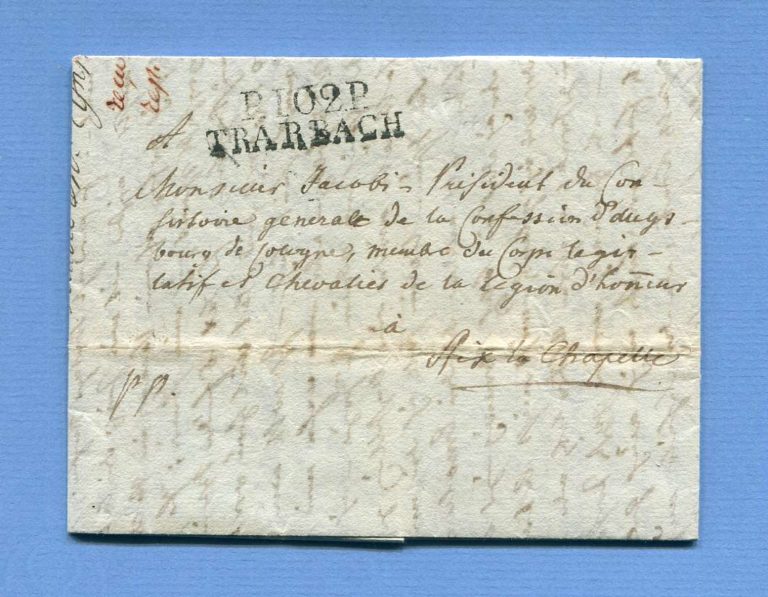 P.102.P.
TRARBACH
A
Monsieur Jacobi - Président du Con-
sistoire generale de la Confession d'augs-
bourg de Cologne, membre du Corps legis-
latif et Chevalier de la Legion d'honneur
à
Aix la Chapelle
pp.